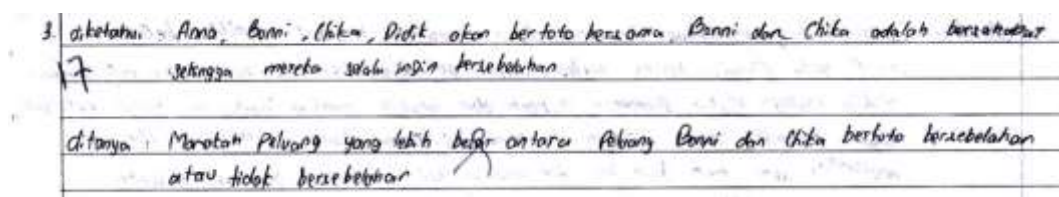 3. diketahui : Anna, Bonni, Chika, Didik akan berfoto bersama. Bonni dan Chika adalah bersahabat
17 sehingga mereka selalu ingin bersebelahan
ditanya : Manakah Peluang yang lebih besar antara Peluang Bonni dan Chika berfoto bersebelahan
atau tidak bersebelahan